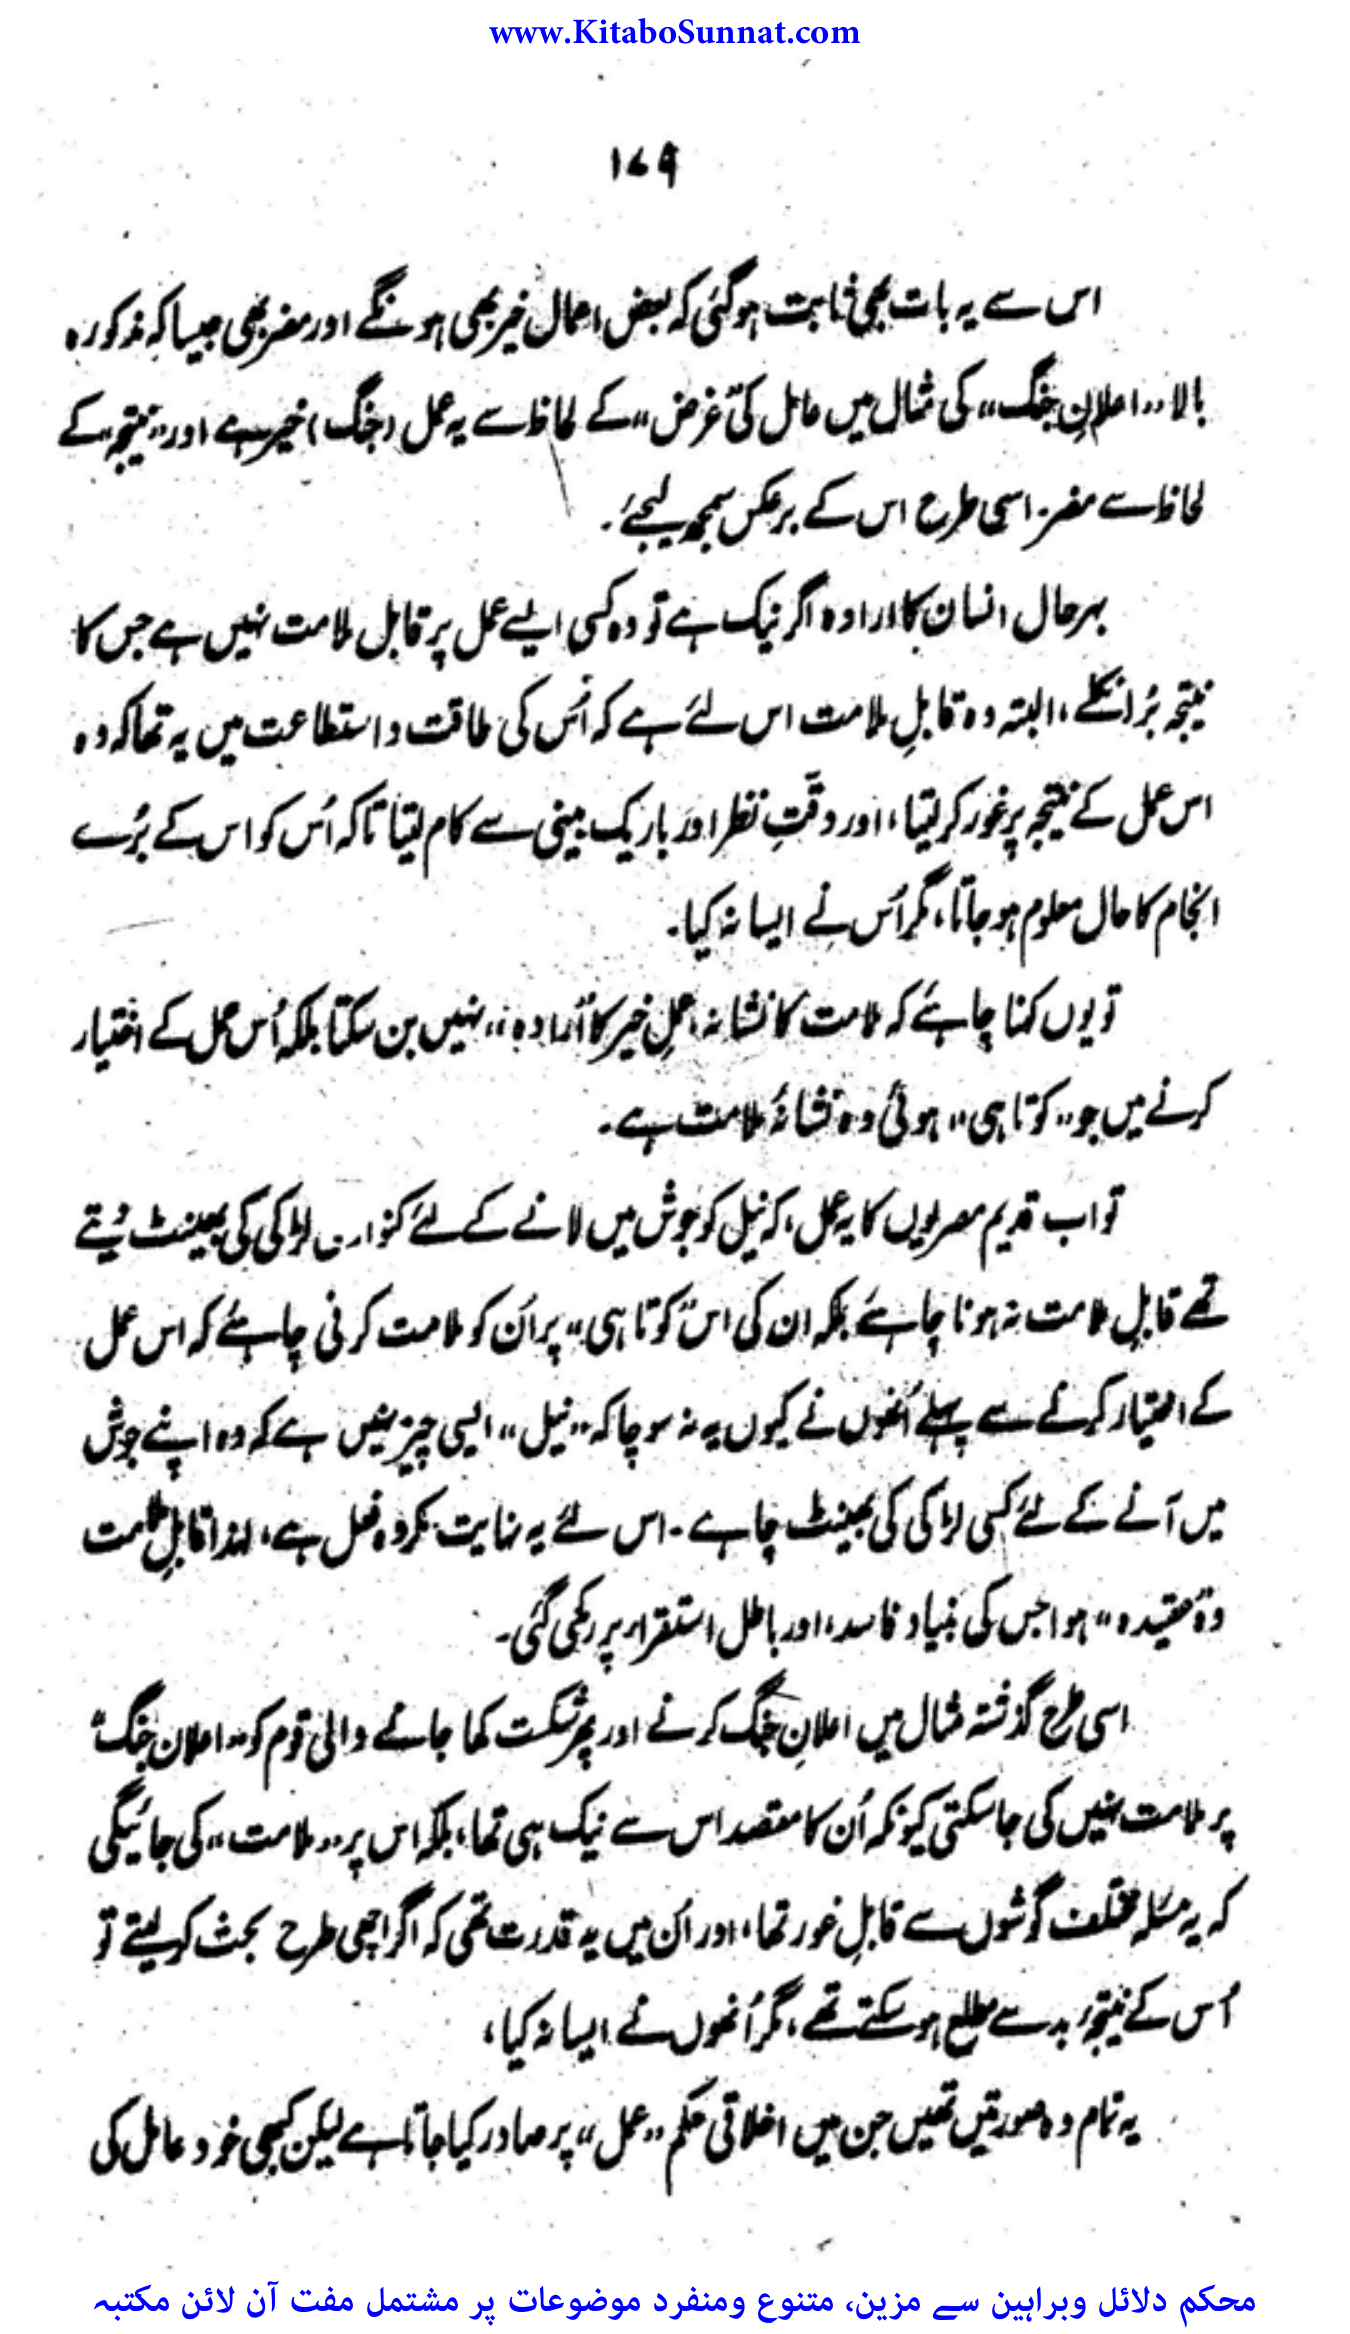 www.KitaboSunnat.com
۱۷۹
اس سے یہ بات بھی ثابت ہوگئی کہ بعض اعمال خیر بھی ہونگے اور مضر بھی جیسا کہ مذکورہ
بالا "اعلانِ جنگ" کی مثال میں عامل کی "غرض" کے لحاظ سے یہ عمل (جنگ) خیر ہے اور "نتیجہ" کے
لحاظ سے مضر۔ اسی طرح اس کے برعکس سمجھ لیجئے۔
بہرحال انسان کا ارادہ اگر نیک ہے تو وہ کسی ایسے عمل پر قابل ملامت نہیں ہے جس کا
نتیجہ بُرا نکلے، البتہ وہ قابلِ ملامت اس لئے ہے کہ اُس کی طاقت و استطاعت میں یہ تھا کہ وہ
اس عمل کے نتیجہ پر غور کرلیتا، اور دقّتِ نظر اور باریک بینی سے کام لیتا تاکہ اُس کو اس کے بُرے
انجام کا حال معلوم ہوجاتا، مگر اُس نے ایسا نہ کیا۔
تو یوں کہنا چاہئے کہ ملامت کا نشانہ، عملِ خیر کا "ارادہ" نہیں بن سکتا بلکہ اُس عمل کے اختیار
کرنے میں جو "کوتاہی" ہوئی وہ نشانۂ ملامت ہے۔
تو اب قدیم مصریوں کا یہ عمل، کہ نیل کو جوش میں لانے کے لئے کنواری لڑکی کی بھینٹ دیتے
تھے قابلِ ملامت نہ ہونا چاہئے بلکہ ان کی اس "کوتاہی" پر اُن کو ملامت کرنی چاہئے کہ اس عمل
کے اختیار کرنے سے پہلے اُنھوں نے کیوں یہ نہ سوچا کہ "نیل" ایسی چیز نہیں ہے کہ وہ اپنے جوش
میں آنے کے لئے کسی لڑکی کی بھینٹ چاہے۔ اس لئے یہ نہایت مکروہ فعل ہے، لہذا قابلِ ملامت
وہ "عقیدہ" ہوا جس کی بنیاد فاسد، اور باطل استقرار پر رکھی گئی۔
اسی طرح گذشتہ مثال میں اعلانِ جنگ کرنے اور پھر شکست کھا جانے والی قوم کو "اعلان جنگ"
پر ملامت نہیں کی جاسکتی کیونکہ اُن کا مقصد اس سے نیک ہی تھا، بلکہ اس پر "ملامت" کی جائیگی
کہ یہ مسئلہ مختلف گوشوں سے قابلِ غور تھا، اور اُن میں یہ قدرت تھی کہ اگر اچھی طرح بحث کرلیتے تو
اُس کے نتیجۂ بد سے مطلع ہوسکتے تھے، مگر اُنھوں نے ایسا نہ کیا،
یہ تمام وہ صورتیں تھیں جن میں اخلاقی حکم "عمل" پر صادر کیا جاتا ہے لیکن کبھی خود عامل کی
محکم دلائل وبراہین سے مزین، متنوع ومنفرد موضوعات پر مشتمل مفت آن لائن مکتبہ